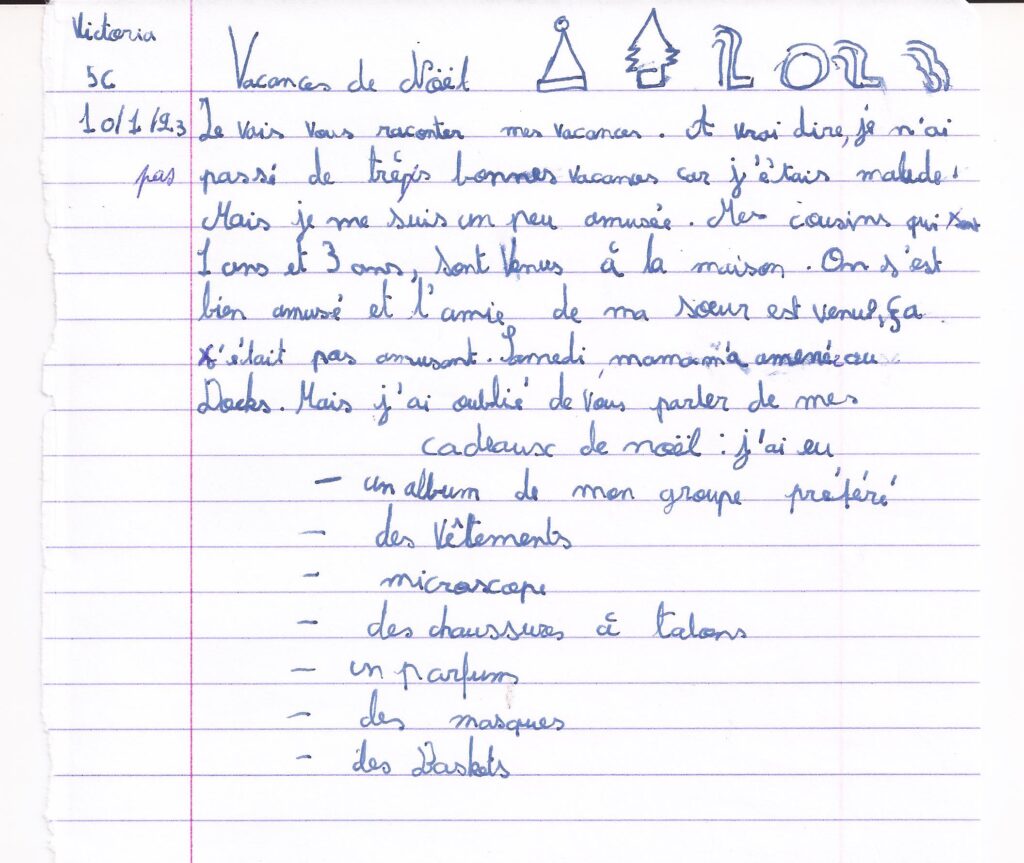 Victoria
5C
Vacances de Noël 2023
10/1/23 Je vais vous raconter mes vacances. A vrai dire, je n'ai
pas passé de très bonnes vacances car j'étais malade.
Mais je me suis un peu amusée. Mes cousins qui sont
1 ans et 3 ans, sont venus à la maison. On s'est
bien amusé et l'amie de ma sœur est venue, ça
n'était pas amusant. Samedi, maman m'a amenée au
Docks. Mais j'ai oublié de vous parler de mes
cadeaux de noël : j'ai eu
- un album de mon groupe préféré
- des vêtements
- microscope
- des chaussures à talons
- un parfum
- des masques
- des Baskets